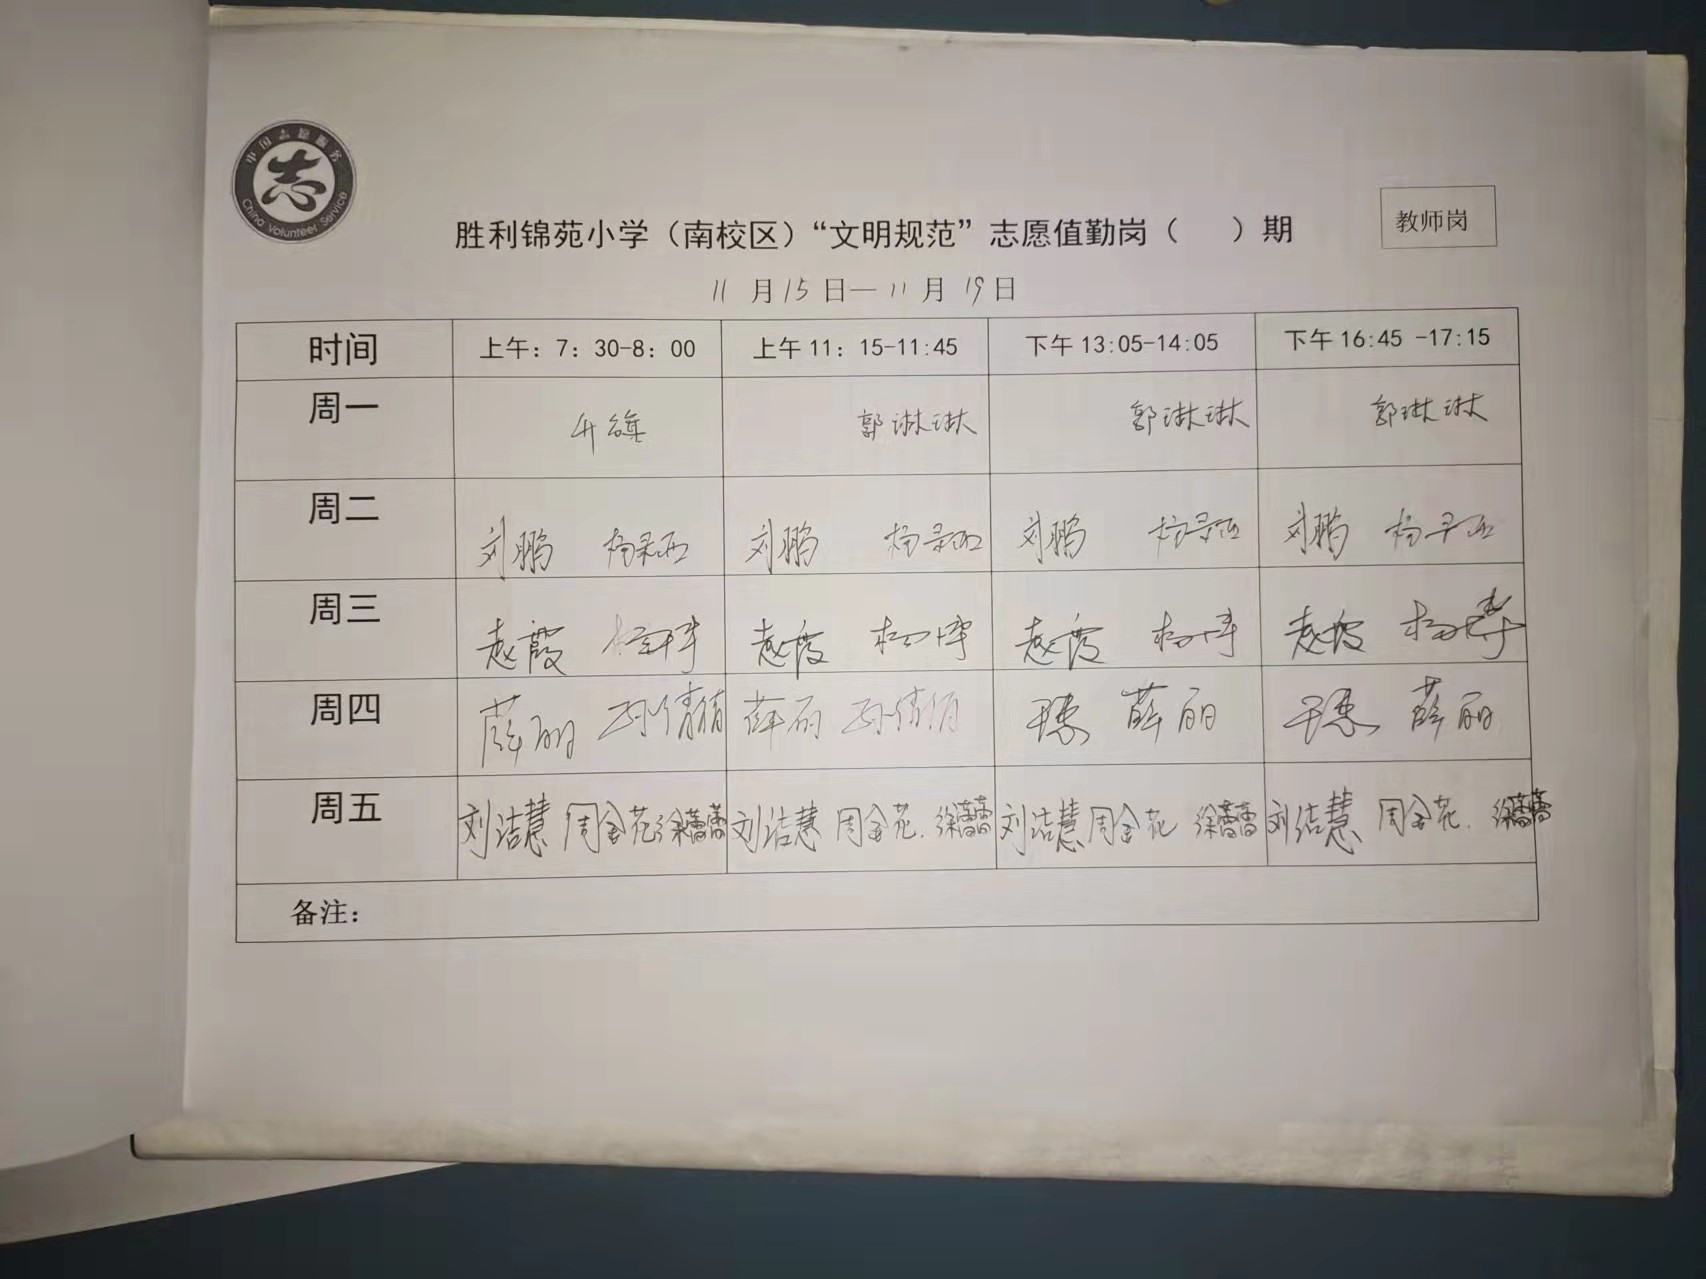 中国志愿服务
志
China Volunteer Service
胜利锦苑小学（南校区）“文明规范”志愿值勤岗（ ）期
教师岗
11 月 15 日— 11 月 19 日
时间 上午：7：30-8：00 上午 11：15-11:45 下午 13:05-14:05 下午 16:45 -17:15
周一 升旗 郭琳琳 郭琳琳 郭琳琳
周二 刘鹏 刘鹏 刘鹏 刘鹏
周三 赵霞 赵霞 赵霞 赵霞
周四 薛丽 孙倩倩 薛丽 孙倩倩 薛丽 薛丽
周五 刘洁慧 周金花 徐蕾蕾 刘洁慧 周金花. 徐蕾蕾 刘洁慧 周金花 徐蕾蕾 刘洁慧 周金花. 徐蕾蕾
备注：